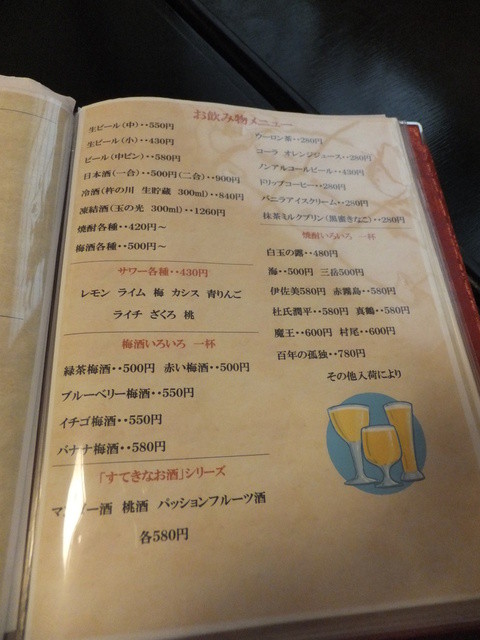 お飲み物メニュー
生ビール(中)・・550円
生ビール(小)・・430円
ビール(中ビン)・・580円
日本酒(一合)・・500円(二合)・・900円
冷酒(杵の川 生貯蔵 300ml)・・840円
凍結酒(玉の光 300ml)・・1260円
焼酎各種・・420円~
梅酒各種・・500円~
サワー各種・・430円
レモン ライム 梅 カシス 青りんご
ライチ ざくろ 桃
梅酒いろいろ 一杯
緑茶梅酒・・500円 赤い梅酒・・500円
ブルーベリー梅酒・・550円
イチゴ梅酒・・550円
バナナ梅酒・・580円
「すてきなお酒」シリーズ
マンゴー酒 桃酒 パッションフルーツ酒
各580円
ウーロン茶・・280円
コーラ オレンジジュース・・280円
ノンアルコールビール・・430円
ドリップコーヒー・・280円
バニラアイスクリーム・・280円
抹茶ミルクプリン(黒蜜きなこ)・・280円
焼酎いろいろ 一杯
白玉の露・・480円
海・・500円 三岳500円
伊佐美580円 赤霧島・・580円
杜氏潤平・・580円 真鶴・・580円
魔王・・600円 村尾・・600円
百年の孤独・・780円
その他入荷により